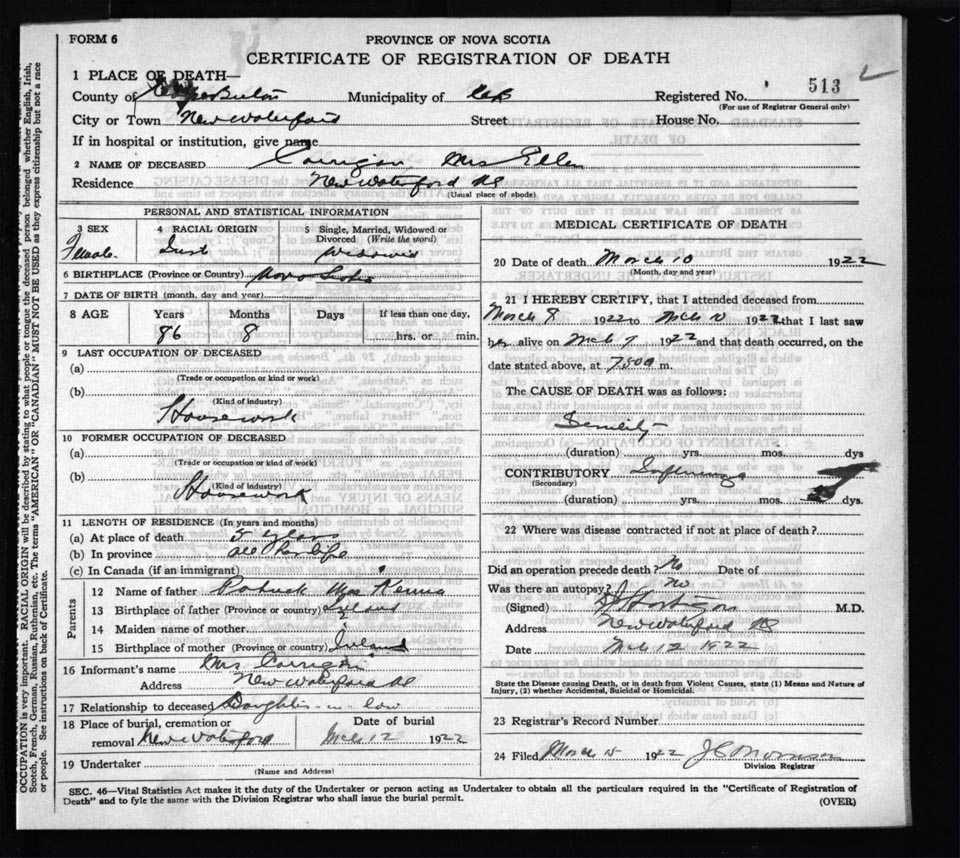 FORM 6
PROVINCE OF NOVA SCOTIA
CERTIFICATE OF REGISTRATION OF DEATH
1 PLACE OF DEATH—
County of Cape Breton Municipality of CB Registered No. 513
(For use of Registrar General only)
City or Town New Waterford Street House No.
If in hospital or institution, give name
2 NAME OF DECEASED Corrigan Mrs Ellen
Residence New Waterford NS
(Usual place of abode)
PERSONAL AND STATISTICAL INFORMATION
3 SEX 4 RACIAL ORIGIN 5 Single, Married, Widowed or Divorced (Write the word)
Female Irish Widowed
6 BIRTHPLACE (Province or Country) Nova Scotia
7 DATE OF BIRTH (month, day and year)
8 AGE Years Months Days If less than one day,
86 8 hrs. or min.
9 LAST OCCUPATION OF DECEASED
(a)
(Trade or occupation or kind or work)
(b)
(Kind of industry)
Housework
10 FORMER OCCUPATION OF DECEASED
(a)
(Trade or occupation or kind of work)
(b)
(Kind of industry)
Housework
11 LENGTH OF RESIDENCE (In years and months)
(a) At place of death 5 years
(b) In province all her life
(c) In Canada (if an immigrant)
Parents
12 Name of father Patrick
13 Birthplace of father (Province or country) Ireland
14 Maiden name of mother
15 Birthplace of mother (Province or country) Ireland
16 Informant's name Mrs Corrigan
Address New Waterford NS
17 Relationship to deceased Daughter-in-law
18 Place of burial, cremation or removal New Waterford Date of burial Mch 12 1922
19 Undertaker
(Name and Address)
MEDICAL CERTIFICATE OF DEATH
20 Date of death March 10 1922
(Month, day and year)
21 I HEREBY CERTIFY, that I attended deceased from
March 8 1922 to Mch 10 1922 that I last saw
her alive on Mch 9 1922 and that death occurred, on the
date stated above, at 750a m.
The CAUSE OF DEATH was as follows:
Senility
(duration) yrs. mos. dys
CONTRIBUTORY Influenza
(Secondary)
(duration) yrs. mos. dys.
22 Where was disease contracted if not at place of death?
Did an operation precede death? No Date of
Was there an autopsy? no
(Signed) M.D.
Address New Waterford NS
Date Mch 12 1922
State the Disease causing Death, or in death from Violent Causes, state (1) Means and Nature of
Injury, (2) whether Accidental, Suicidal or Homicidal.
23 Registrar's Record Number
24 Filed March 15 1922
Division Registrar
SEC. 46—Vital Statistics Act makes it the duty of the Undertaker or person acting as Undertaker to obtain all the particulars required in the "Certificate of Registration of
Death" and to fyle the same with the Division Registrar who shall issue the burial permit.
(OVER)
OCCUPATION is very important. RACIAL ORIGIN will be described by stating to what people or tongue the deceased person belonged whether English, Irish,
Scotch, French, German, Russian, Ruthenian, etc. The terms "AMERICAN" OR "CANADIAN" MUST NOT BE USED as they express citizenship but not a race
or people. See instructions on back of Certificate.